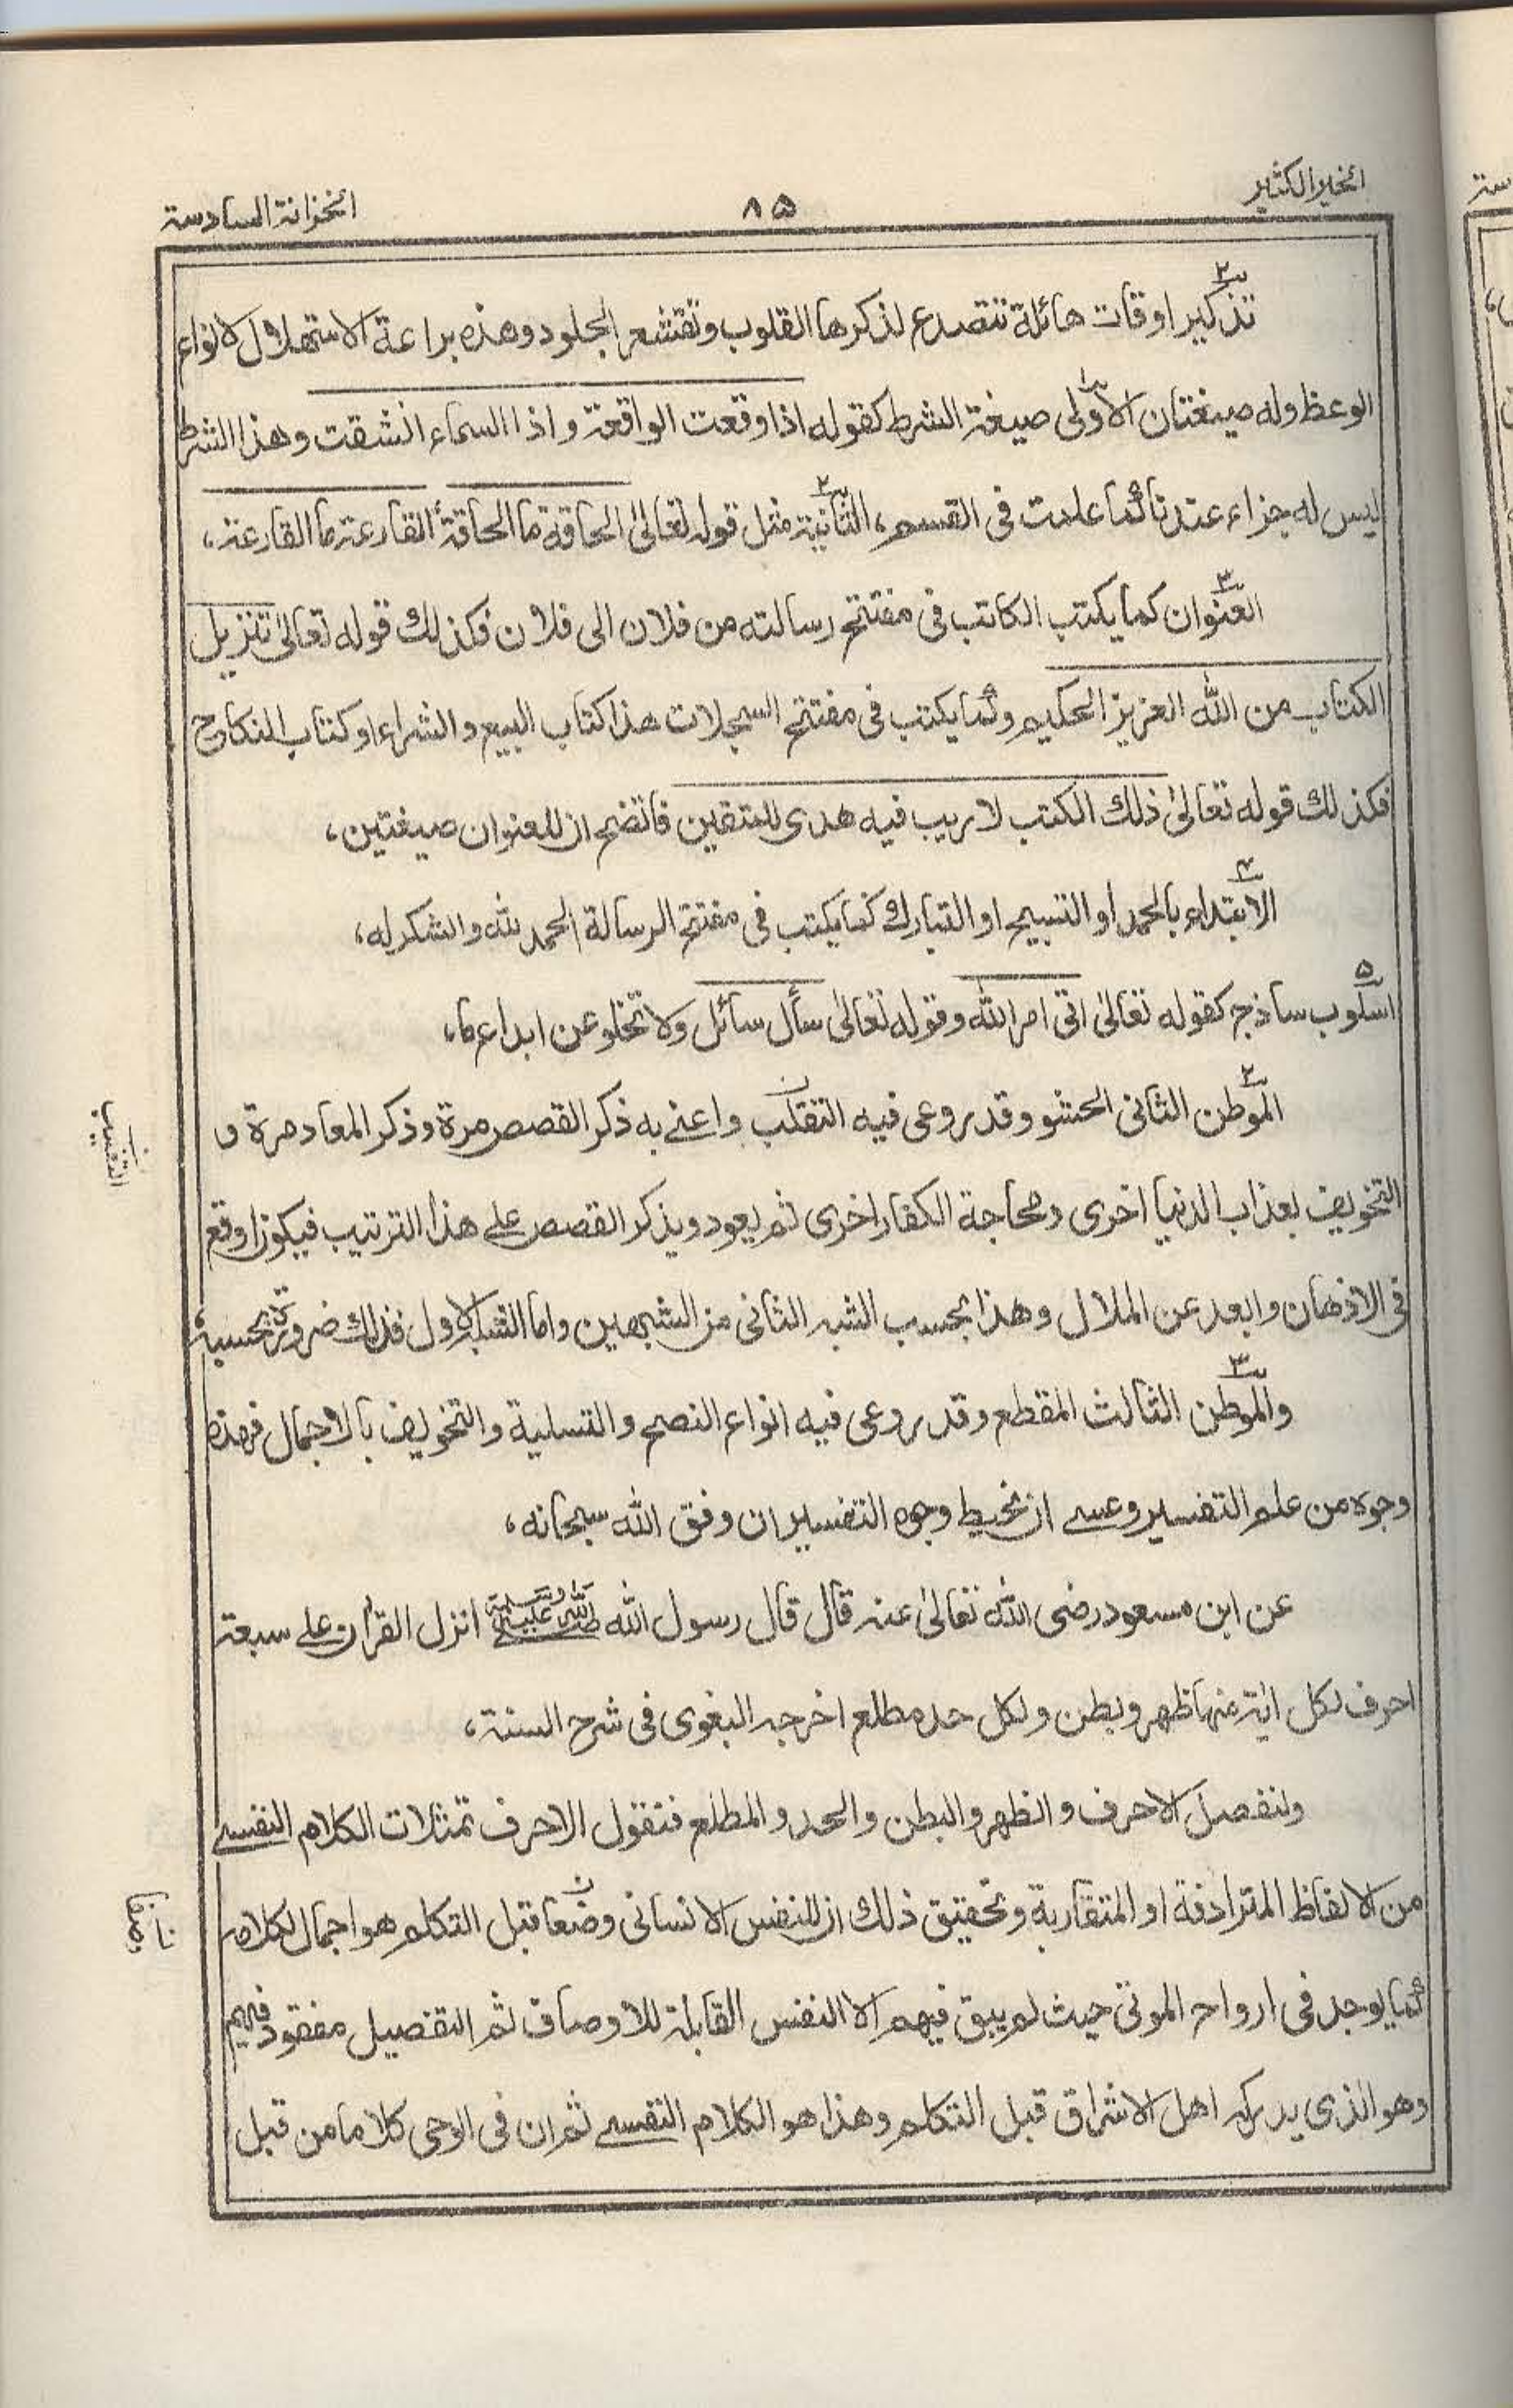 الخير الكثير
٨٥
الخزانة السادسة
٢
تذكير اوقات هائلة تتصدع لذكرها القلوب وتقشعر الجلود وهذه براعة الاستهلال لانواع
الوعظ وله صيغتان الاولى صيغة الشرط كقوله اذا وقعت الواقعة و اذا السماء انشقت وهذا الشرط
ليس له جزاء عندنا كما علمت فى القسم، الثانية مثل قوله تعالىٰ الحاقة ما الحاقة القارعة ما القارعة،
٣
العنوان كما يكتب الكاتب فى مفتتح رسالته من فلان الى فلان فكذلك قوله تعالىٰ تنزيل
الكتاب من الله العزيز الحكيم وكما يكتب فى مفتتح السجلات هذا كتاب البيع و الشراء او كتاب النكاح
فكذلك قوله تعالىٰ ذلك الكتب لا ريب فيه هدى للمتقين فاتضح ان للعنوان صيغتين،
٤
الابتداء بالحمد او التسبيح او التبارك كما يكتب فى مفتتح الرسالة الحمد لله و الشكر له،
۵
اسلوب ساذج كقوله تعالىٰ اتى امر الله وقوله تعالىٰ سأل سائل ولا تخلو عن ابداع ما،
٢
الموطن الثانى الحشو وقد روعى فيه التقلب واعنے به ذكر القصص مرة وذكر المعاد مرة و
التخويف بعذاب الدنيا اخرى ومحاجة الكفار اخرى ثم يعود ويذكر القصص علے هذا الترتيب فيكون اوقع
فى الاذهان وابعد عن الملال وهذا بحسب الشبه الثانى من الشبهين واما الشبه الاول فذلك ضرورة بحسبه،
٣
والموطن الثالث المقطع وقد روعى فيه انواع النصح والتسلية والتخويف بالاجمال فهذه
وجوه من علم التفسير وعسے ان نحيط وجوه التفسير ان وفق الله سبحانه،
عن ابن مسعود رضى الله تعالىٰ عنه قال قال رسول الله صلى الله عليه وسلم انزل القرأن علے سبعة
احرف لكل اية منها ظهر وبطن ولكل حد مطلع اخرجه البغوى فى شرح السنة،
ولنفصل الاحرف و الظهر والبطن والحد و المطلع فنقول الاحرف تمثلات الكلام النفسے
من الالفاظ المترادفة او المتقاربة وتحقيق ذلك ان للنفس الانسانى وضعا قبل التكلم هو اجمال الكلام
كما يوجد فى ارواح الموتىٰ حيث لم يبق فيهم الا النفس القابلة للاوصاف ثم التفصيل مفقود فيهم
وهو الذى يدركه اهل الاشراق قبل التكلم وهذا هو الكلام النفسے ثم ان فى الوحى كلاما من قبل